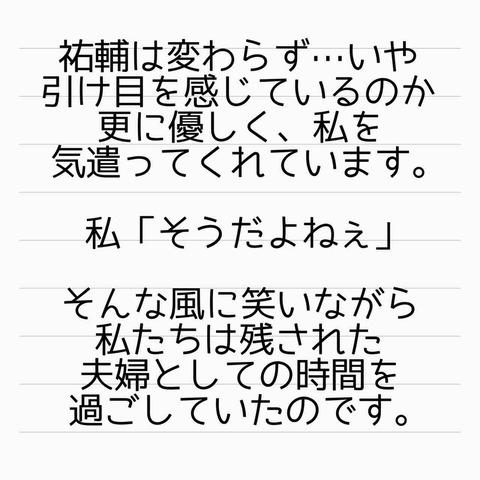 祐輔は変わらず…いや
引け目を感じているのか
更に優しく、私を
気遣ってくれています。
私「そうだよねぇ」
そんな風に笑いながら
私たちは残された
夫婦としての時間を
過ごしていたのです。